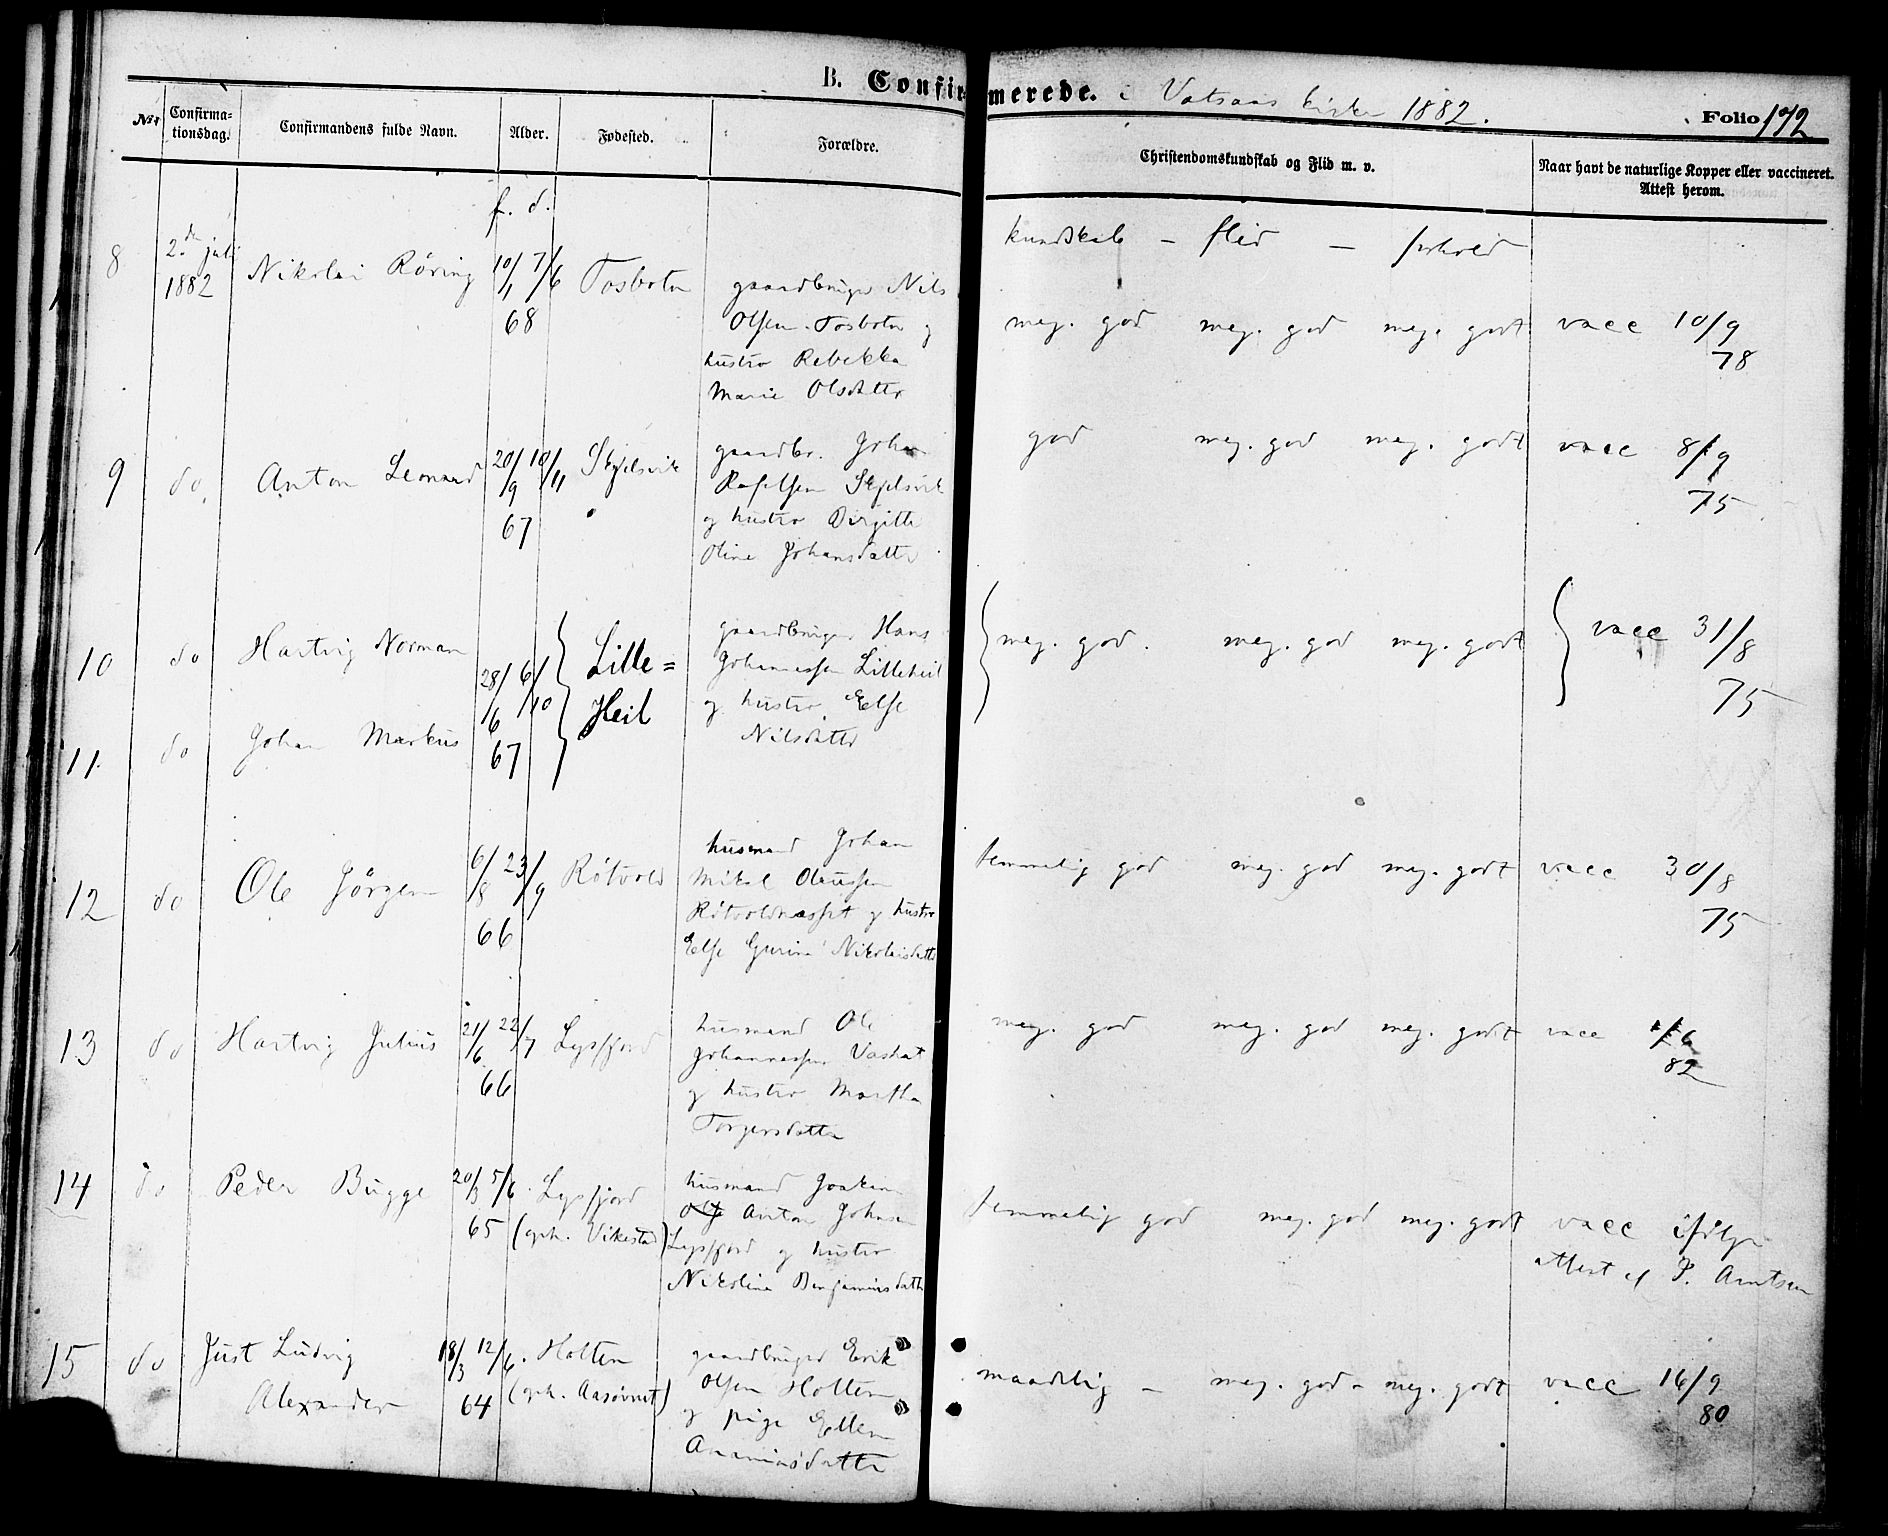 B. Confirmerede. i Vatsaas kirke 1882.
Folio 172
No.
Confirma-
tionsdag.
Confirmandens fulde Navn.
Alder.
Fødested.
Forældre.
Christendomskundskab og Flid m. v.
Naar havt de naturlige Kopper eller vaccineret.
Attest herom.
f. d.
kundskab – flid – forhold
8
2. juli
1882
Nikolai Röring
10/1 7/6
68
Tosbotn
gaardbruger Nils
Olsen Tosbotn og
hustro Rebekka
Marie Olsdatter
meg. god meg. god meg. godt vacc 10/9
78
9
do
Anton Leonard
20/9 10/11
67
Skjelsvik
gaardbr. Johan
Skjelsvik
og hustro Birgitte
Oline Johansdatter
god meg. god meg. godt vacc 8/9
75
10
do
Hartvig Norman
28/6 6/10
67
Lille=
Heil
gaardbruger Hans
Johannessen Lilleheil
og hustro Else
Nilsdatter
meg. god. meg. god meg. godt vacc 31/8
75
11.
do
Johan Markus
12
do
Ole Jörgen
6/8 23/9
66
Rötvold
husmand Johan
Mikal Olaussen
Rötvoldnesset og hustro
Else Gurina Nikolaisdatter
temmelig god meg. god meg. godt vacc 30/8
75
13
do
Hartvig Julius
21/6 22/7
66
Lysfjord
husmand Ole
Johannessen
og hustro Martha
Torgersdatter
meg. god meg. god meg. godt vacc 1/6
82
14
do
Peder Bugge
20/3 5/6.
65
Lysfjord
(oph. Vikestad)
husmand Joakim
Anton Johnsen
Lysfjord og hustro
Nikolina Benjaminsdatter
temmelig god meg. god meg. godt vacc ifölge
attest af P. Arntsen
15
do
Just Ludvig
Alexander
18/3 12/6.
64
Holten
(oph. Aasövnet)
gaardbruger Erik
Olsen Holten
og pige Ellen
Ananiasdatter
maadelig – meg. god – meg. godt vacc 16/9
80